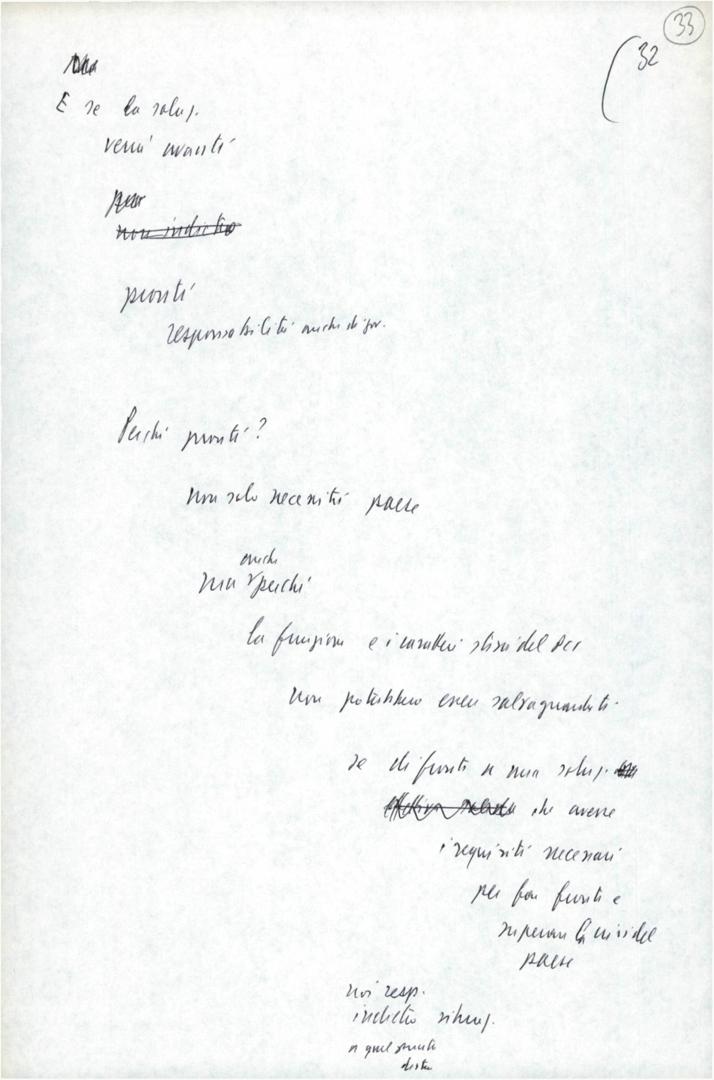 33
32
E se la soluz.
verrà avanti
pronti
responsabilità anche di gov.
Perché pronti?
non solo necessità paese
anche
ma perché
la funzione e i caratteri stessi del PCI
non potrebbero essere salvaguardati
se di fronte a una soluz.
che avesse
i requisiti necessari
per far fronte e
superare la crisi del
paese
noi resp.
indietro
a quel punto